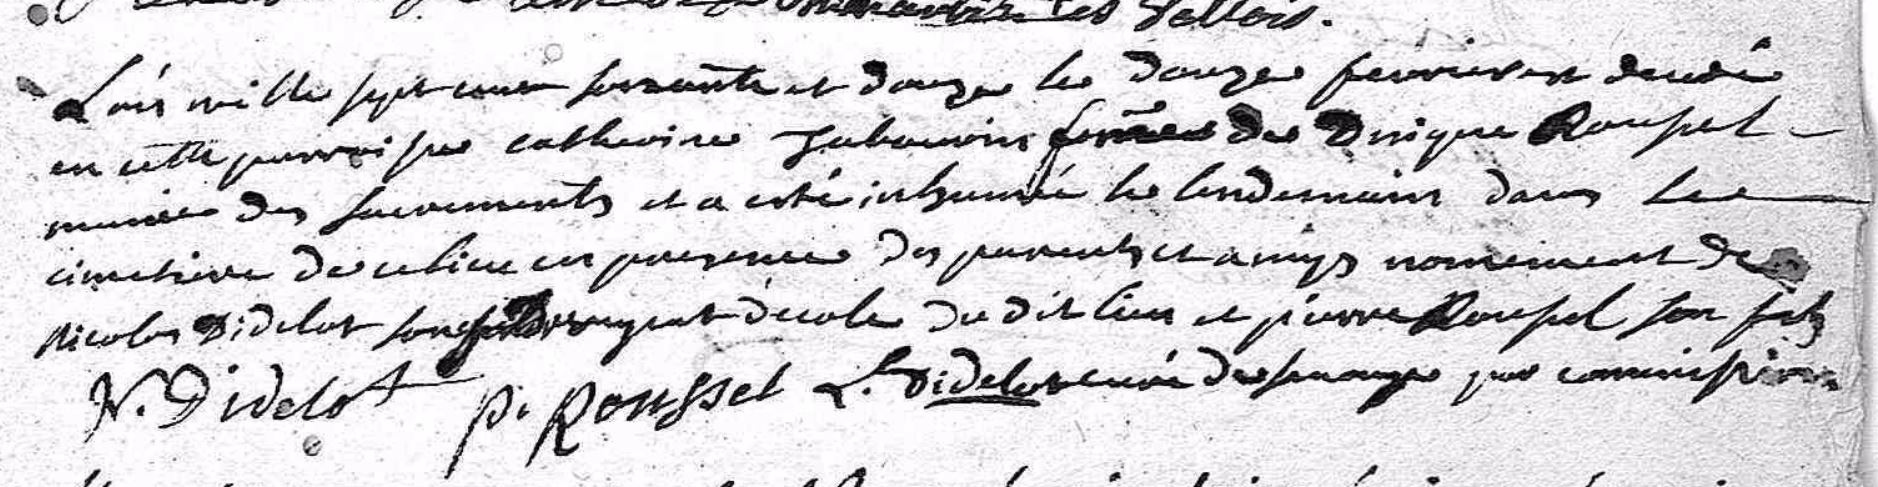 L'an mille sept cent soixante et douze le douze fevrier est decedée
en cette parroisse catherine femme de Dinique Roussel
munie des sacrements et a esté inhumée le lendemain dans le
cimetiere de ce lieu en presence des parents et amys nomément de
Nicolas Didelot son regent d'ecole du dit lieu et pierre Roussel son fils
N. Didelot P. Rousssel L. Didelot curé de senonge par commission